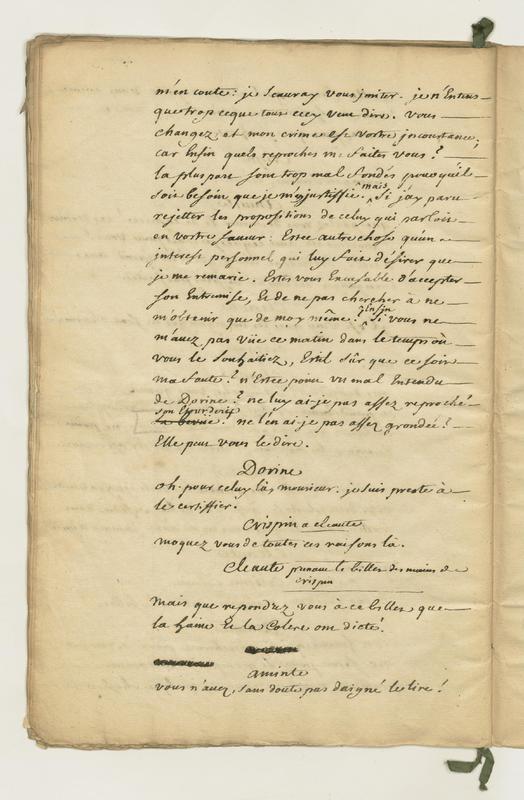 m'en coute: je scauray vous jmiter. je n'Entens
que trop ceque tout cecy veut dire. vous
changez, et mon crime est vostre jnconstance;
car Enfin quels reproches me faites vous?
la pluspart sont trop mal fondés pour qu'il
soit besoin que je m'en justiffie. mais Si j'ay paru
rejetter les propositions de celuy qui parloit
en vostre faveur: Estce autre chose qu'un
jnterest personnel qui luy fait désirer que
je me remarie. Estes vous Excusable d'accepter
son Entremise, Et de ne pas chercher a ne
m'obtenir que de moy même? Enfin Si vous ne
m'avez pas vüe ce matin dans le temps où
vous le souhaitiez, Estil sûr que ce soit
ma faute? n'Estce point un mal Entendu
de Dorine? ne luy ai-je pas assez reproché
son Etourderie
la bevue. ne l'en ai-je pas assez grondée?
Elle peut vous le dire.
Dorine
oh. pour celuy là, monsieur. je suis preste à
le certiffier.
Crispin a cleante
moquez vous de toutes ces raisons là.
Cleante prenant le billet des mains de
Crispin
Mais que repondrez vous à ce billet que
la haine Et la Colere ont dicté.
aminte
vous n'avez, sans doute pas daigné le lire!